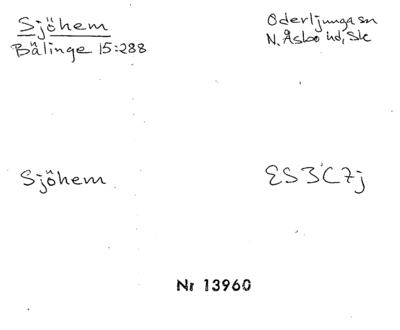 Sjöhem
Bälinge 15:288
Oderljunga sn
N. Åsbo hd, Sk
Sjöhem
ES3C7j
Nr 13960